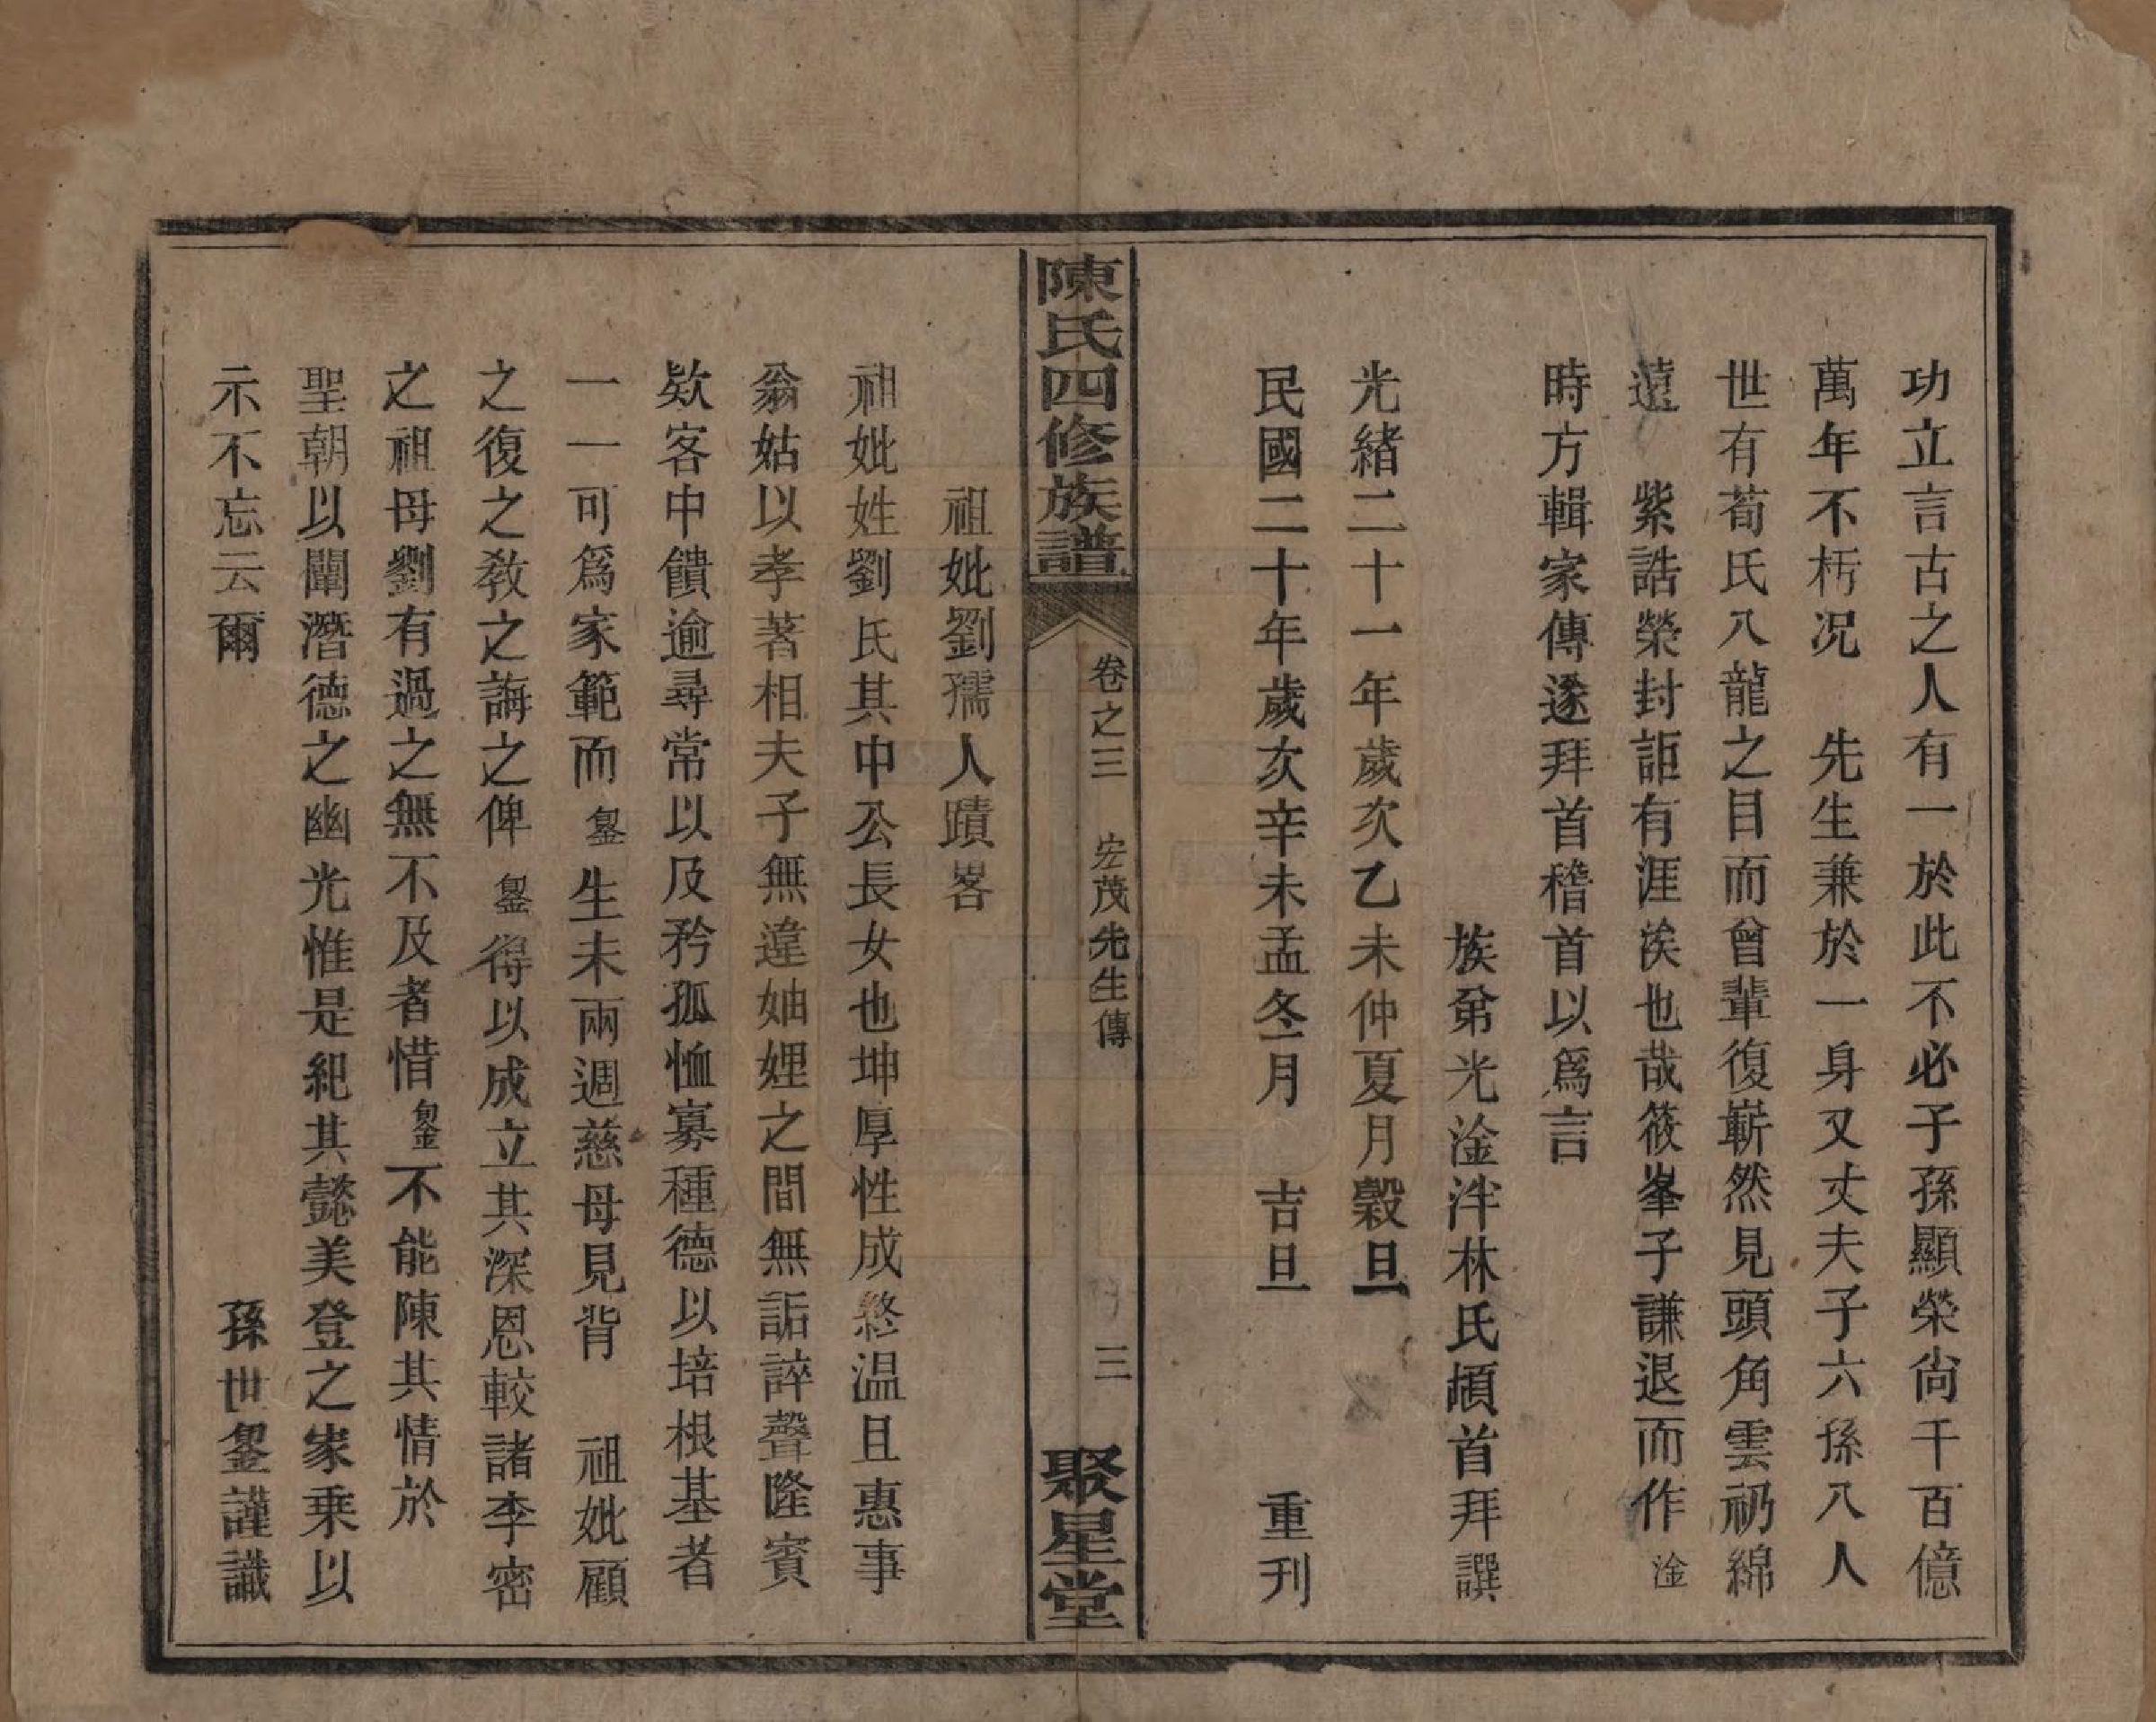 功立言古之人有一於此不必子孫顯榮尙千百億
萬年不朽况　先生兼於一身又丈夫子六孫八人
世有荀氏八龍之目而曾輩復嶄然見頭角雲礽綿
遠　紫誥榮封詎有涯涘也哉筱峯子謙退而作淦
時方輯家傳遂拜首稽首以爲言
族弟光淦泮林氏頓首拜譔
光緒二十一年歲次乙未仲夏月穀旦
民國二十年歲次辛未孟冬月　吉旦　重刊
陳氏四修族譜　卷之三　宏茂先生傳　三　聚星堂
祖妣劉孺人蹟畧
祖妣姓劉氏其中公長女也坤厚性成終温且惠事
翁姑以孝著相夫子無違妯娌之間無詬誶聲隆賓
欵客中饋逾尋常以及矜孤恤寡種德以培根基者
一一可爲家範而鋆生未兩週慈母見背　祖妣顧
之復之教之誨之俾鋆得以成立其深恩較諸李密
之祖母劉有過之無不及者惜鋆不能陳其情於
聖朝以闡潛德之幽光惟是紀其懿美登之家乗以
示不忘云爾
孫世鋆謹識